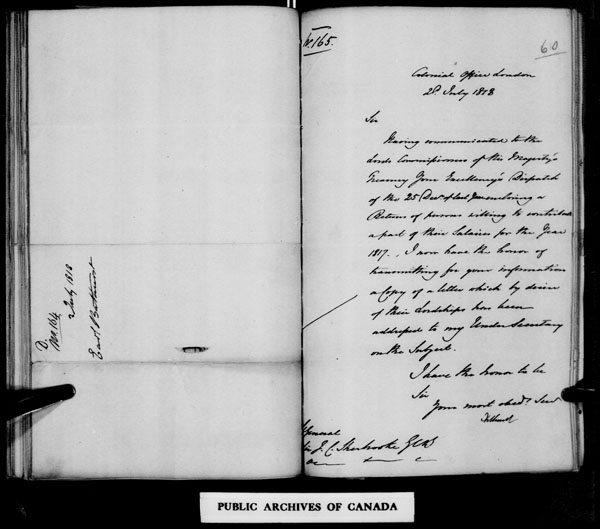 D.
2 July 1818
Earl Bathurst
No. 165.
60
Colonial Office London
2d. July 1818
Sir
Having communicated to the
Lords Commissioners of His Majesty's
Treasury Your Excellency's Dispatch
of the 25 Decr. of last year enclosing a
Return of persons willing to contribute
a part of their Salaries for the Year
1817., I now have the honor of
transmitting for your information
a Copy of a letter which by desire
of their Lordships has been
addressed to my Under Secretary
on the Subject.
I have the honor to be
Sir
Your most obedt. Servt
Bathurst
General
Sir J. C. Sherbrooke GCB
PUBLIC ARCHIVES OF CANADA